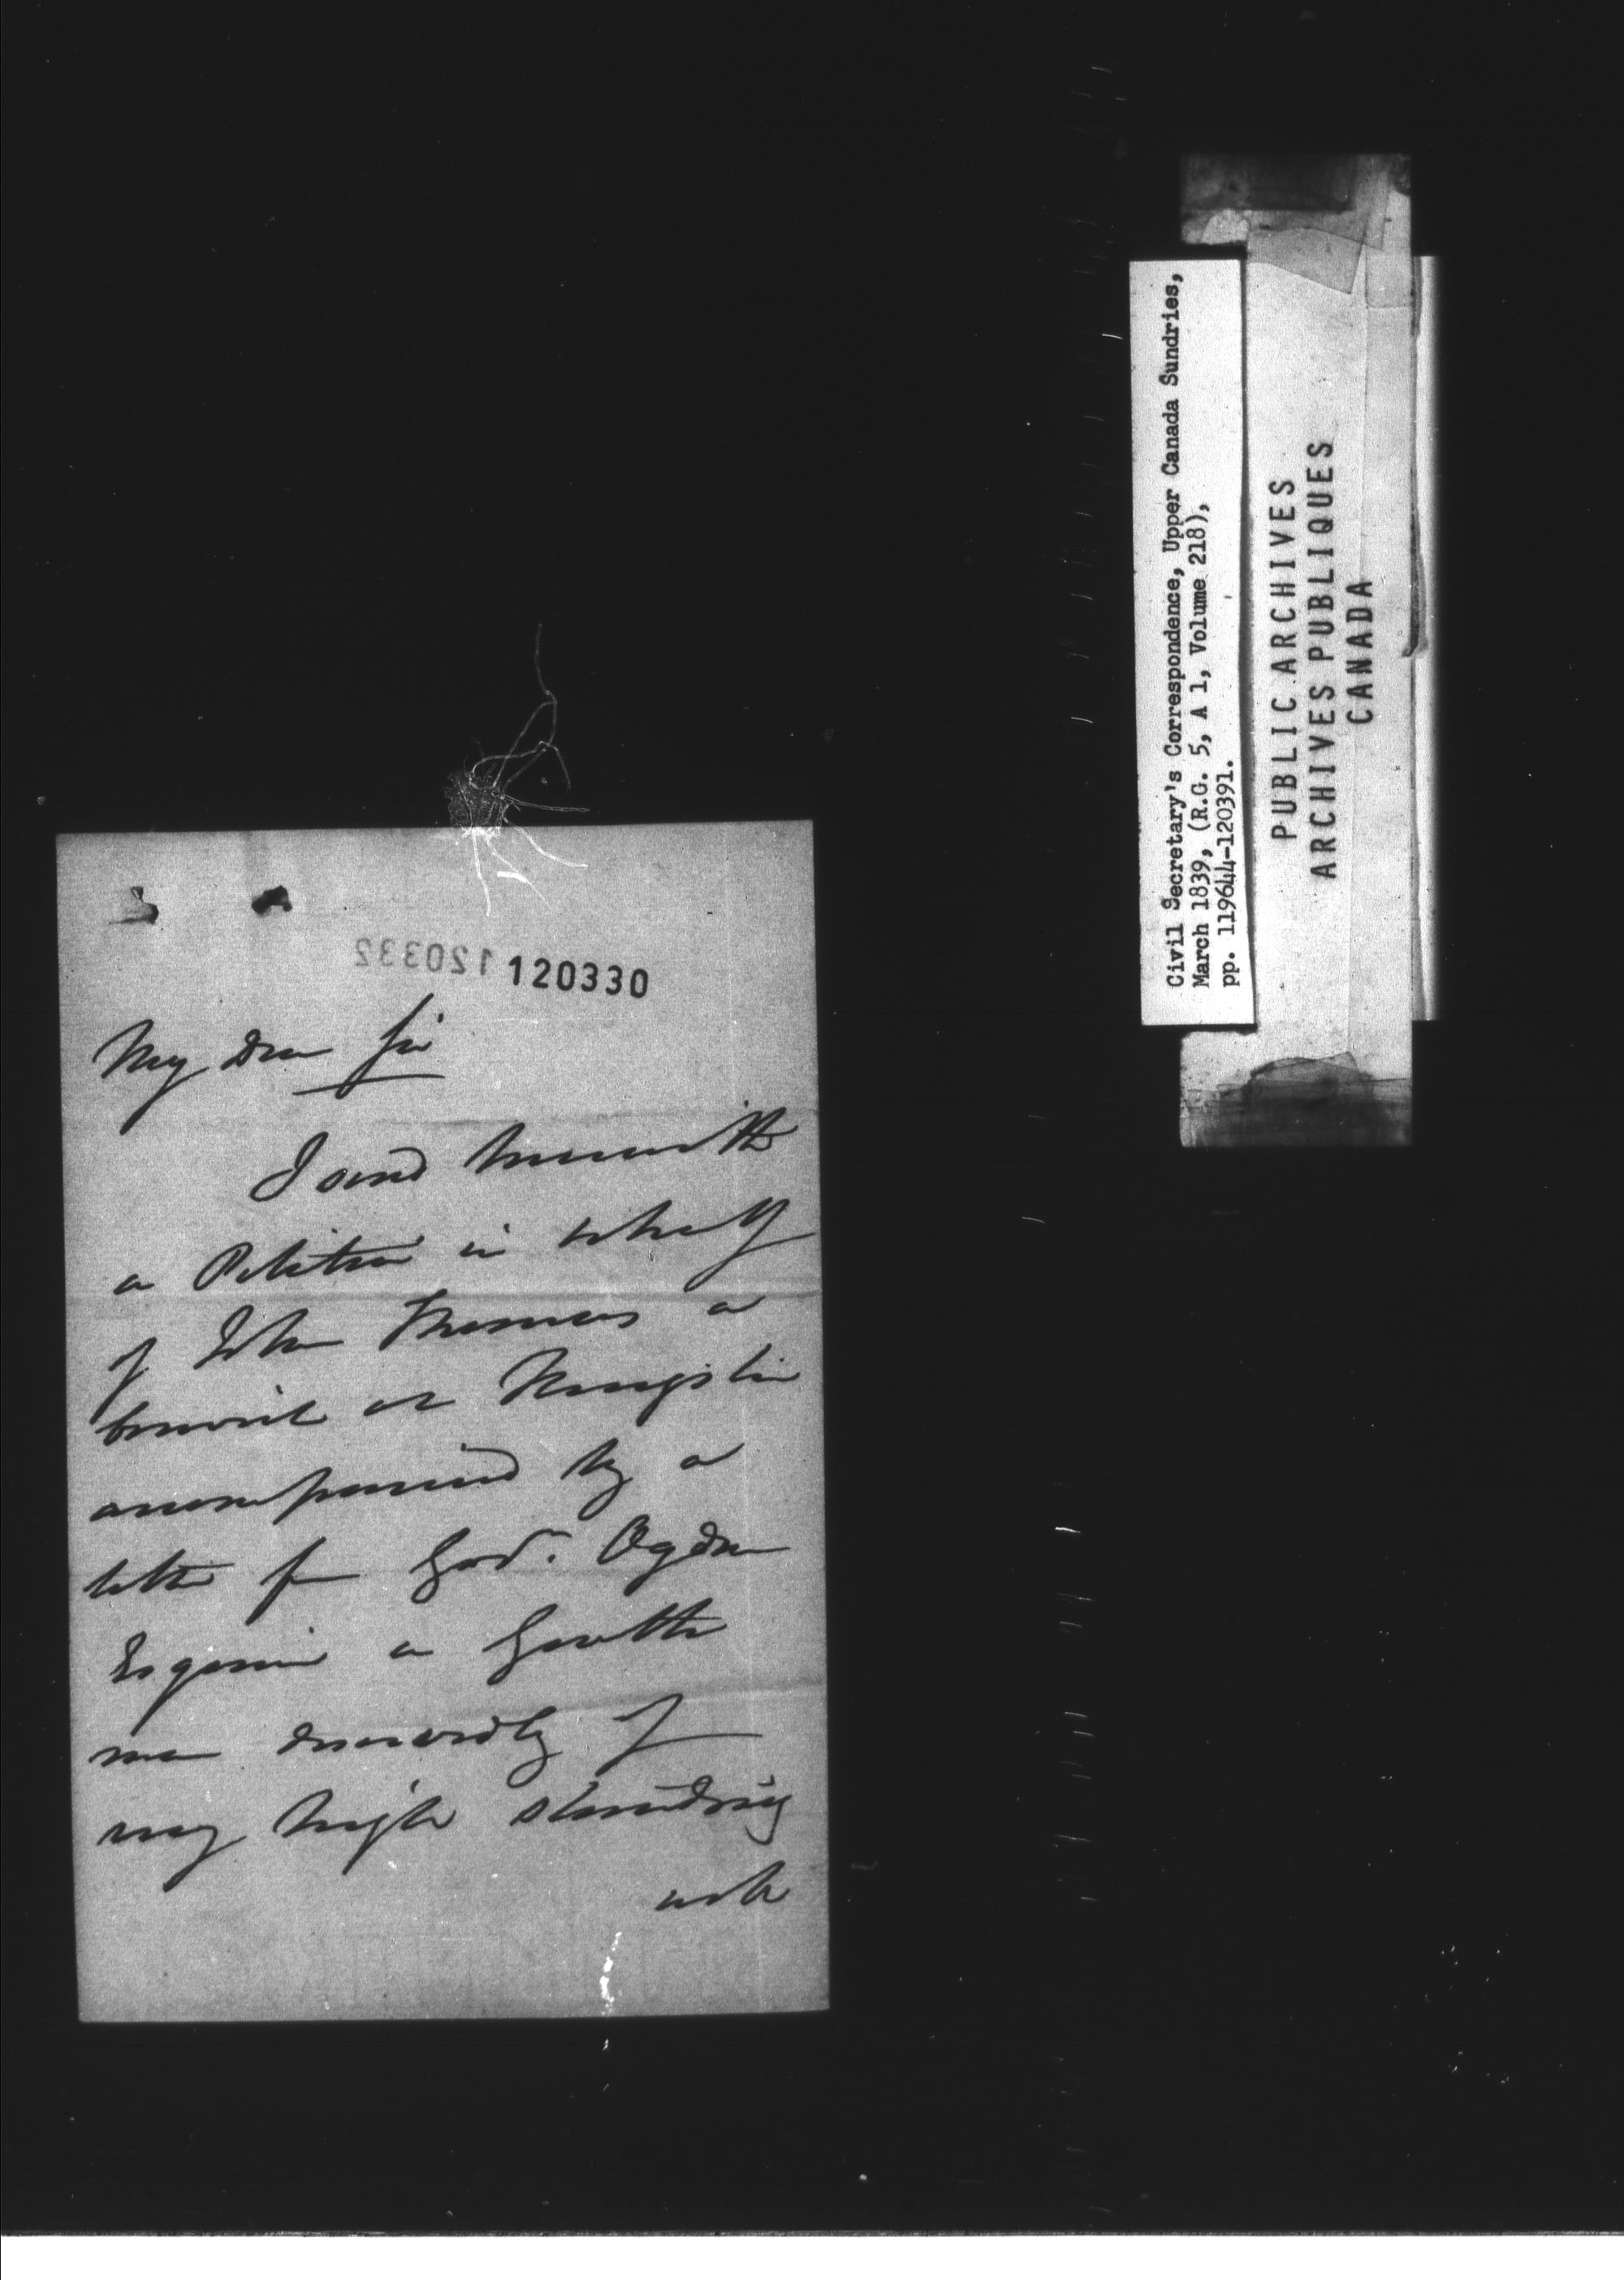 120332 120330
My Dear Sir
I send herewith
a Petition in behalf
of John Thomas a
convict at Kingston
accompanied by a
letter fm Gov^r. Ogden
Esquire a Gentle
man deservedly of
very high standing
Civil Secretary's Correspondence, Upper Canada Sundries,
March 1839, (R.G. 5, A 1, Volume 218),
pp. 119644-120391.
PUBLIC ARCHIVES
ARCHIVES PUBLIQUES
CANADA